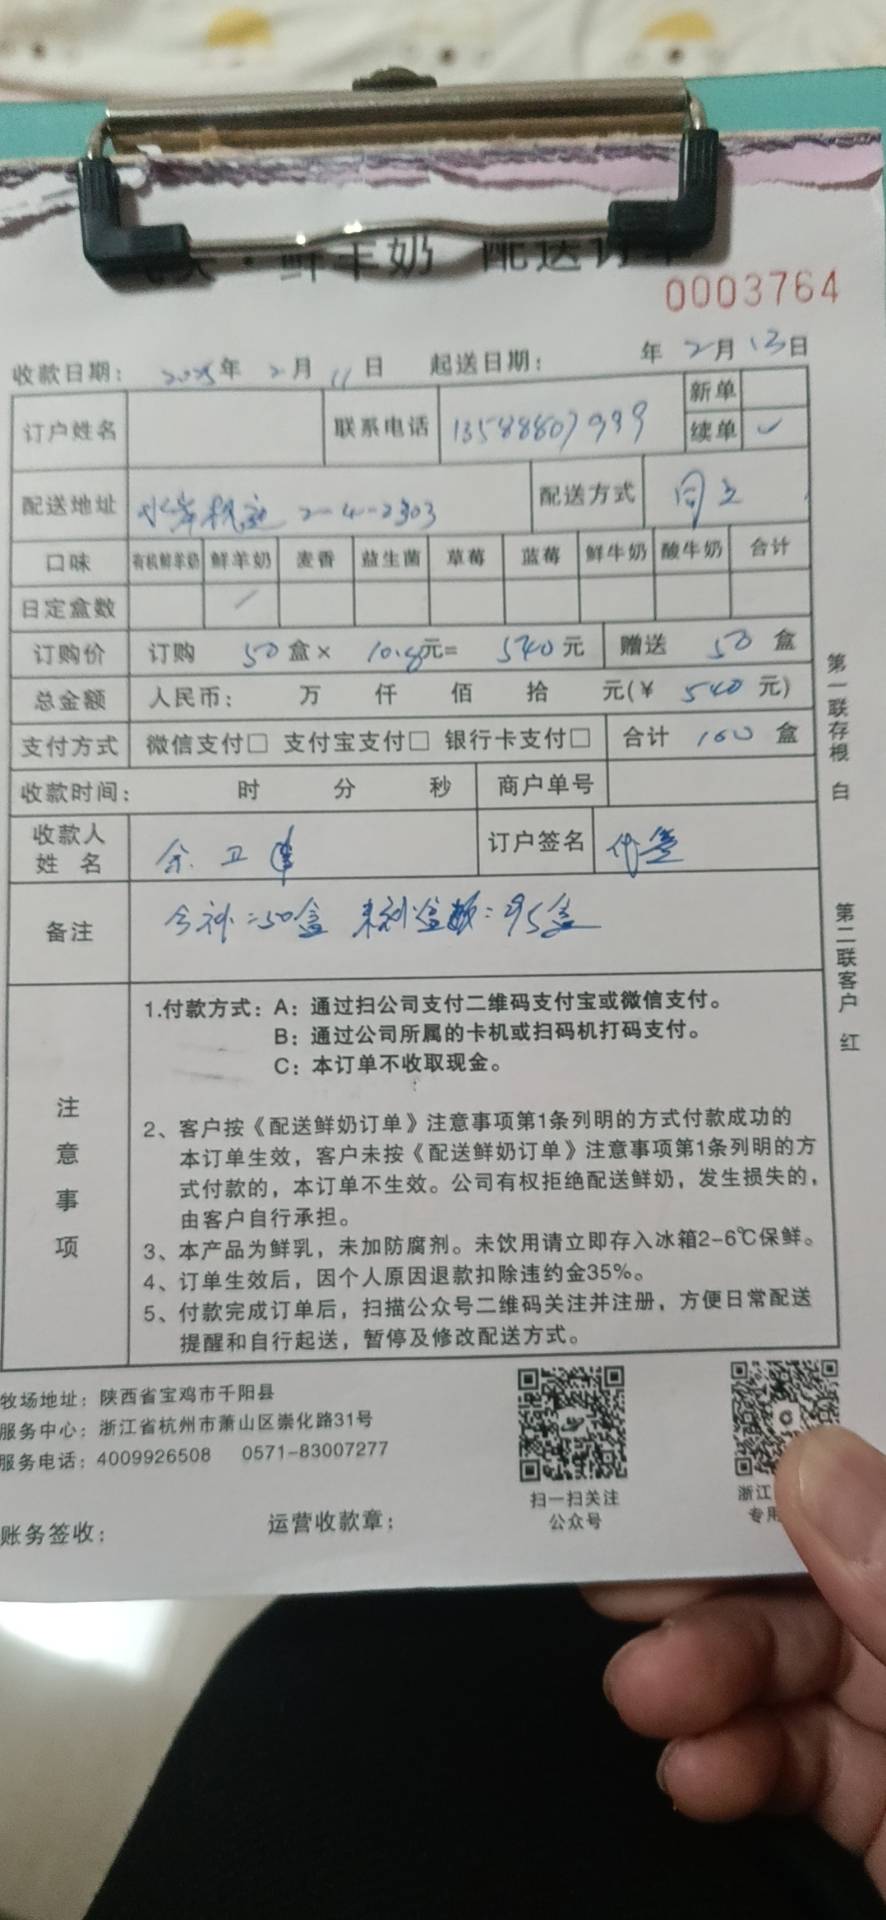 鲜羊奶 配送订单
0003764
收款日期： 2025年 2月 11日 起送日期： 年 2月 13日
订户姓名 联系电话 13588807999 新单
续单 ✓
配送地址 2-4-2303 配送方式 同上
口味 有机鲜羊奶 鲜羊奶 麦香 益生菌 草莓 蓝莓 鲜牛奶 酸牛奶 合计
日定盒数
订购价 订购 50盒× 10.8元= 540元 赠送 50 盒
总金额 人民币： 万 仟 佰 拾 元(¥ 540 元)
支付方式 微信支付□ 支付宝支付□ 银行卡支付□ 合计 100 盒
收款时间： 时 分 秒 商户单号
收款人
姓 名 余卫 订户签名 代签
备注 今补=50盒 盒数：95盒
注意事项
1.付款方式：A：通过扫公司支付二维码支付宝或微信支付。
B：通过公司所属的卡机或扫码机打码支付。
C：本订单不收取现金。
2、客户按《配送鲜奶订单》注意事项第1条列明的方式付款成功的
本订单生效，客户未按《配送鲜奶订单》注意事项第1条列明的方
式付款的，本订单不生效。公司有权拒绝配送鲜奶，发生损失的，
由客户自行承担。
3、本产品为鲜乳，未加防腐剂。未饮用请立即存入冰箱2-6℃保鲜。
4、订单生效后，因个人原因退款扣除违约金35%。
5、付款完成订单后，扫描公众号二维码关注并注册，方便日常配送
提醒和自行起送，暂停及修改配送方式。
第一联存根 白
第二联客户 红
牧场地址：陕西省宝鸡市千阳县
服务中心：浙江省杭州市萧山区崇化路31号
服务电话：4009926508 0571-83007277
扫一扫关注
公众号
浙江
专用
账务签收： 运营收款章：